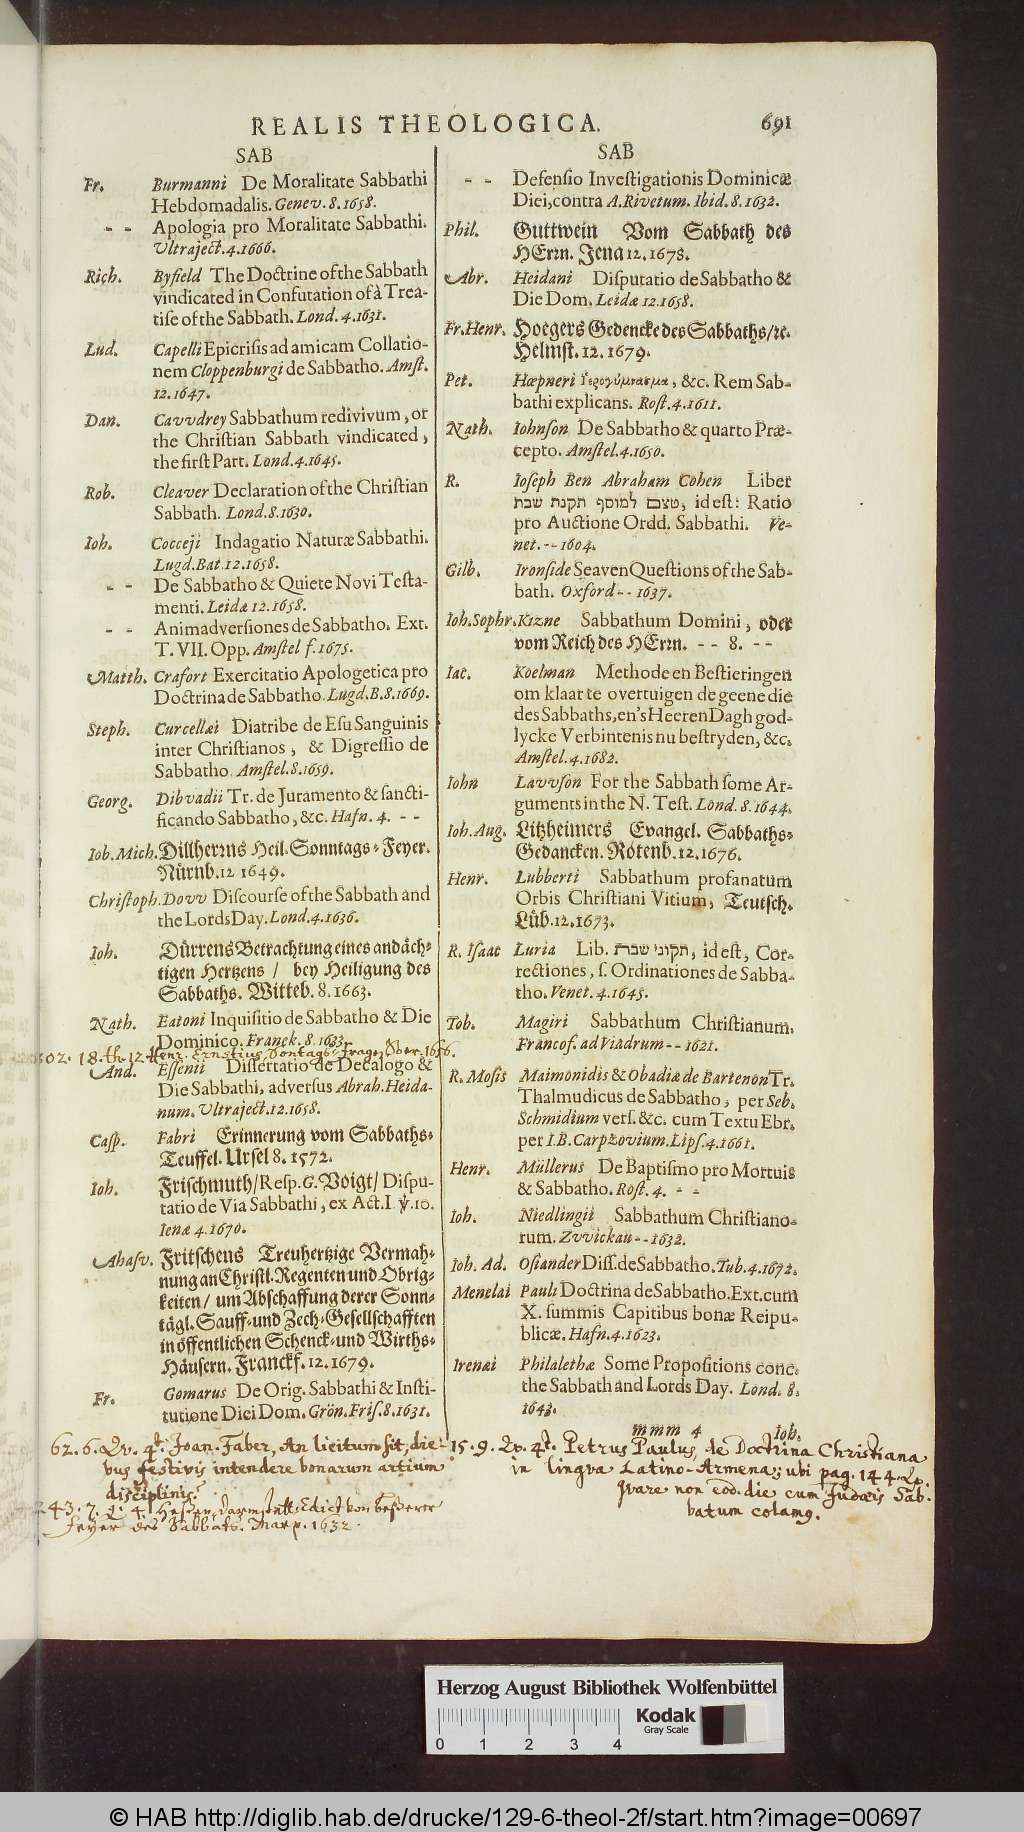 REALIS THEOLOGICA.
691
SAB
Fr. Burmanni De Moralitate Sabbathi
Hebdomadalis. Genev. 8. 1658.
- - Apologia pro Moralitate Sabbathi.
Ultraject. 4. 1666.
Rich. Byfield The Doctrine of the Sabbath
vindicated in Confutation of à Trea-
tise of the Sabbath. Lond. 4. 1631.
Lud. Capelli Epicrisis ad amicam Collatio-
nem Cloppenburgi de Sabbatho. Amst.
12. 1647.
Dan. Cavvdrey Sabbathum redivivum, or
the Christian Sabbath vindicated,
the first Part. Lond. 4. 1645.
Rob. Cleaver Declaration of the Christian
Sabbath. Lond. 8. 1630.
Ioh. Cocceji Indagatio Naturæ Sabbathi.
Lugd. Bat. 12. 1658.
- - De Sabbatho & Quiete Novi Testa-
menti. Leidæ 12. 1658.
- - Animadversiones de Sabbatho. Ext.
T. VII. Opp. Amstel f. 1675.
Matth. Crafort Exercitatio Apologetica pro
Doctrina de Sabbatho. Lugd. B. 8. 1669.
Steph. Curcellæi Diatribe de Esu Sanguinis
inter Christianos, & Digressio de
Sabbatho. Amstel. 8. 1659.
Georg. Dibvadii Tr. de Juramento & sancti-
ficando Sabbatho, &c. Hafn. 4. - -
Ioh. Mich. Dillherrns Heil. Sonntags-Feyer.
Nürnb. 12 1649.
Christoph. Dovv Discourse of the Sabbath and
the Lords Day. Lond. 4. 1636.
Ioh. Dürrens Betrachtung eines andäch-
tigen Hertzens / bey Heiligung des
Sabbaths. Witteb. 8. 1663.
Nath. Eatoni Inquisitio de Sabbatho & Die
Dominico. Franek. 8. 1633.
502. 18. Th. 12 Henr. Ernstius Sontags-Fragen 1656.
And. Essenii Dissertatio de Decalogo &
Die Sabbathi, adversus Abrah. Heida-
num. Ultraject. 12. 1658.
Casp. Fabri Erinnerung vom Sabbaths-
Teuffel. Ursel 8. 1572.
Ioh. Frischmuth / Resp. G. Voigt / Dispu-
tatio de Via Sabbathi, ex Act. I. ℣. 10.
Ienæ 4. 1670.
Ahasv. Fritschens Treuhertzige Vermah-
nung an Christl. Regenten und Obrig-
keiten / um Abschaffung derer Sonn-
tägl. Sauff- und Zech-Gesellschafften
in öffentlichen Schenck- und Wirths-
Häusern. Franckf. 12. 1679.
Fr. Gomarus De Orig. Sabbathi & Insti-
tutione Diei Dom. Grön. Fris. 8. 1631.
62. 6. Qv. 4t. Joan. Faber, An licitum sit, die-
bus festivis intendere bonarum artium
disciplinis.
243. 7. Q. 4. Hessen-Darmstatt. Edict von besserer
Feyer des Sabbats. Marp. 1632.
SAB
- - Defensio Investigationis Dominicæ
Diei, contra A. Rivetum. Ibid. 8. 1632.
Phil. Guttwein Vom Sabbath des
HErrn. Jena 12. 1678.
Abr. Heidani Disputatio de Sabbatho &
Die Dom. Leidæ 12. 1658.
Fr. Henr. Hoegers Gedencke des Sabbaths / ꝛc.
Helmst. 12. 1679.
Pet. Hœpneri Ἱερογύμνασμα, &c. Rem Sab-
bathi explicans. Rost. 4. 1611.
Nath. Iohnson De Sabbatho & quarto Præ-
cepto. Amstel. 4. 1650.
R. Ioseph Ben Abraham Cohen Liber
למוסף תקנת שבת, id est: Ratio
pro Auctione Ordd. Sabbathi. Ve-
net. - - 1604.
Gilb. Ironside Seaven Questions of the Sab-
bath. Oxford - - 1637.
Ioh. Sophr. Kızne Sabbathum Domini, oder
vom Reich des HErrn. - - 8. - -
Iac. Koelman Methode en Bestieringen
om klaar te overtuigen de geene die
des Sabbaths, en's Heeren Dagh god-
lycke Verbintenis nu bestryden, &c.
Amstel. 4. 1682.
Iohn Lavvson For the Sabbath some Ar-
guments in the N. Test. Lond. 8. 1644.
Ioh. Aug. Litzheimers Evangel. Sabbaths-
Gedancken. Rotenb. 12. 1676.
Henr. Lubberti Sabbathum profanatum
Orbis Christiani Vitium, Teutsch.
Lüb. 12. 1673.
R. Isaac Luria Lib. תקוני שבת, id est, Cor-
rectiones, s. Ordinationes de Sabba-
tho. Venet. 4. 1645.
Tob. Magiri Sabbathum Christianum.
Francof. ad Viadrum - - 1621.
R. Mosis Maimonidis & Obadiæ de Bartenon Tr.
Thalmudicus de Sabbatho, per Seb.
Schmidium vers. &c. cum Textu Ebr.
per I. B. Carpzovium. Lips. 4. 1661.
Henr. Müllerus De Baptismo pro Mortuis
& Sabbatho. Rost. 4. - -
Ioh. Niedlingii Sabbathum Christiano-
rum. Zvvickau - - 1632.
Ioh. Ad. Osiander Diss. de Sabbatho. Tub. 4. 1672.
Menelai Pauli Doctrina de Sabbatho. Ext. cum
X. summis Capitibus bonæ Reipu-
blicæ. Hafn. 4. 1623.
Irenæi Philalethæ Some Propositions conc.
the Sabbath and Lords Day. Lond. 8.
1643.
mmm 4 Ioh.
15. 9. Qv. 4t. Petrus Paulus, de Doctrina Christiana
in lingva Latino-Armena; ubi pag. 144. Qv.
Qvare non eod. die cum Judæis Sab-
batum colamq.
Herzog August Bibliothek Wolfenbüttel
Kodak
Gray Scale
0 1 2 3 4
© HAB http://diglib.hab.de/drucke/129-6-theol-2f/start.htm?image=00697